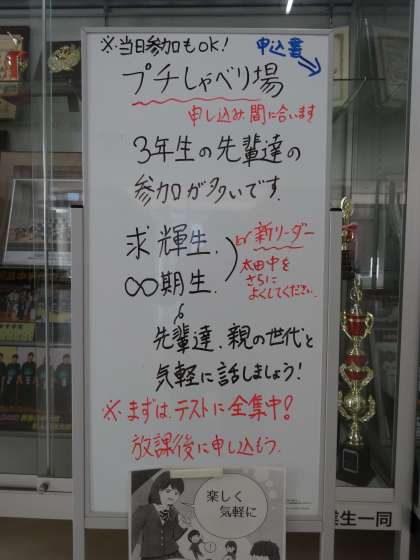 ※当日参加もOK!
申込書
プチしゃべり場
申し込み間に合います
3年生の先輩達の
参加が多いです。
求輝生、
∞期生、
新リーダー
太田中を
さらに
よくしてください。
先輩達、親の世代と
気軽に話しましょう!
※まずは、テストに全集中!
放課後に申し込もう。
楽しく
気軽に
生一同